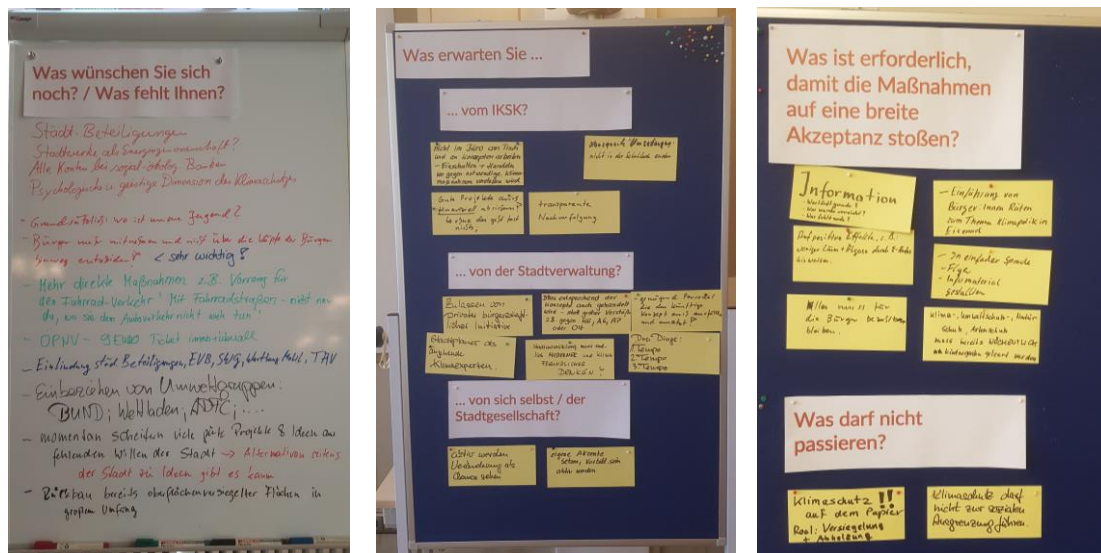 Was wünschen Sie sich
noch? / Was fehlt Ihnen?
Städt. Beteiligungen
Stadtwerke als Energiegenossenschaft?
Alle Konten bei sozial-ökolog. Banken
Psychologische u. geistige Dimension des Klimaschutzes
- Grundsätzlich: wo ist unsere Jugend?
- Bürger mehr mitnehmen und nicht über die Köpfe der Bürger
hinweg entscheiden! < sehr wichtig!
- Mehr direkte Maßnahmen z.B. Vorrang für
den Fahrrad-Verkehr! Mit Fahrradstraßen - nicht nur
da, wo sie den Autoverkehr nicht weh tun!
- ÖPNV - 9 Euro Ticket
- Einbindung städt. Beteiligungen, EVB, SWG, Wartburgmobil, TAV
- Einbeziehen von Umweltgruppen:
BUND; Weltladen; ADFC; ....
- momentan scheitern viele gute Projekte & Ideen am
fehlenden Willen der Stadt → Alternativen seitens
der Stadt zu Ideen gibt es kaum
- Rückbau bereits oberflächenversiegelter Flächen in
großem Umfang
Was erwarten Sie ...
... vom IKSK?
Nicht im Büro am Tisch
und an Konzepten arbeiten
- Einschalten + Handeln
wo gegen notwendige Klima-
maßnahmen verstoßen wird
Konsequente Umsetzung:
nicht in der Schublade enden
Gute Projekte aus
nichts!
transparente
Nachverfolgung
... von der Stadtverwaltung?
Zulassen von
privater bürgerschaft-
licher Initiative
Dass entsprechend der
Konzepte auch gehandelt
wird
genügend Personal
Konzept
Drei Dinge:
1. Tempo
2. Tempo
3. Tempo
Klimaexperten.
DENKEN!
... von sich selbst / der
Stadtgesellschaft?
aktiv werden
Veränderung als
Chance sehen
eigene Akzente
setzen, Vorbild sein
aktiv werden
Was ist erforderlich,
damit die Maßnahmen
auf eine breite
Akzeptanz stoßen?
Information
- Was läuft gerade?
- Was wurde erreicht?
- Was fehlt noch?
- Einführung von
Bürger:innen Räten
zum Thema Klimapolitik in
Eisenach
Auf positive Effekte, z.B.
weniger Lärm + Abgase durch
hinweisen.
- In einfacher Sprache
- Infomaterial
gestalten
Alles muss für
die Bürger bezahlbar
bleiben.
Klima-, Umweltschutz-, Natur-
schutz, Artenschutz
muss bereits WÖCHENTLICH
im Kindergarten gelehrt werden
Was darf nicht
passieren?
Klimaschutz !!
auf dem Papier
Real: Versiegelung
+ Abholzung
Klimaschutz darf
nicht zur sozialen
Ausgrenzung führen.